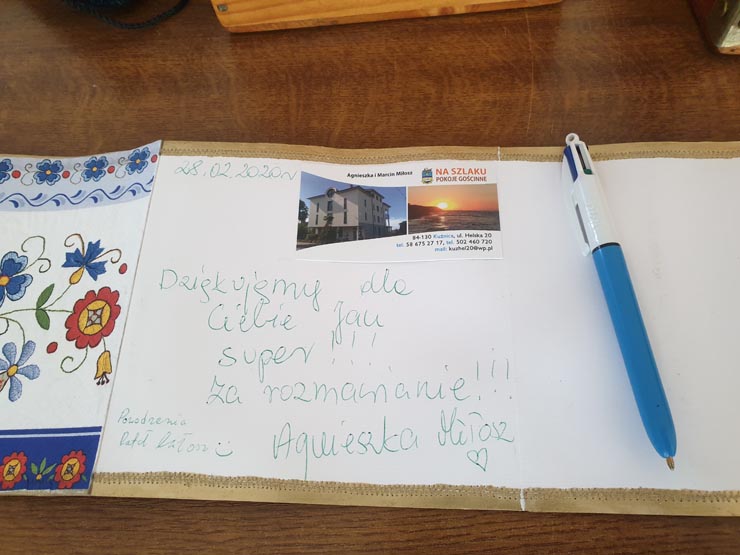 28.02.2020r
Agnieszka i Marcin Miłosz
NA SZLAKU
POKOJE GOŚCINNE
84-130 Kuźnica, ul. Helska 20
tel. 58 675 27 17, tel. 502 460 720
mail: kuzhel20@wp.pl
Dziękujemy dla
Ciebie Jan
super!!!
Za rozmawianie!!!
Agnieszka Miłosz
Pozdrienia
Rafał